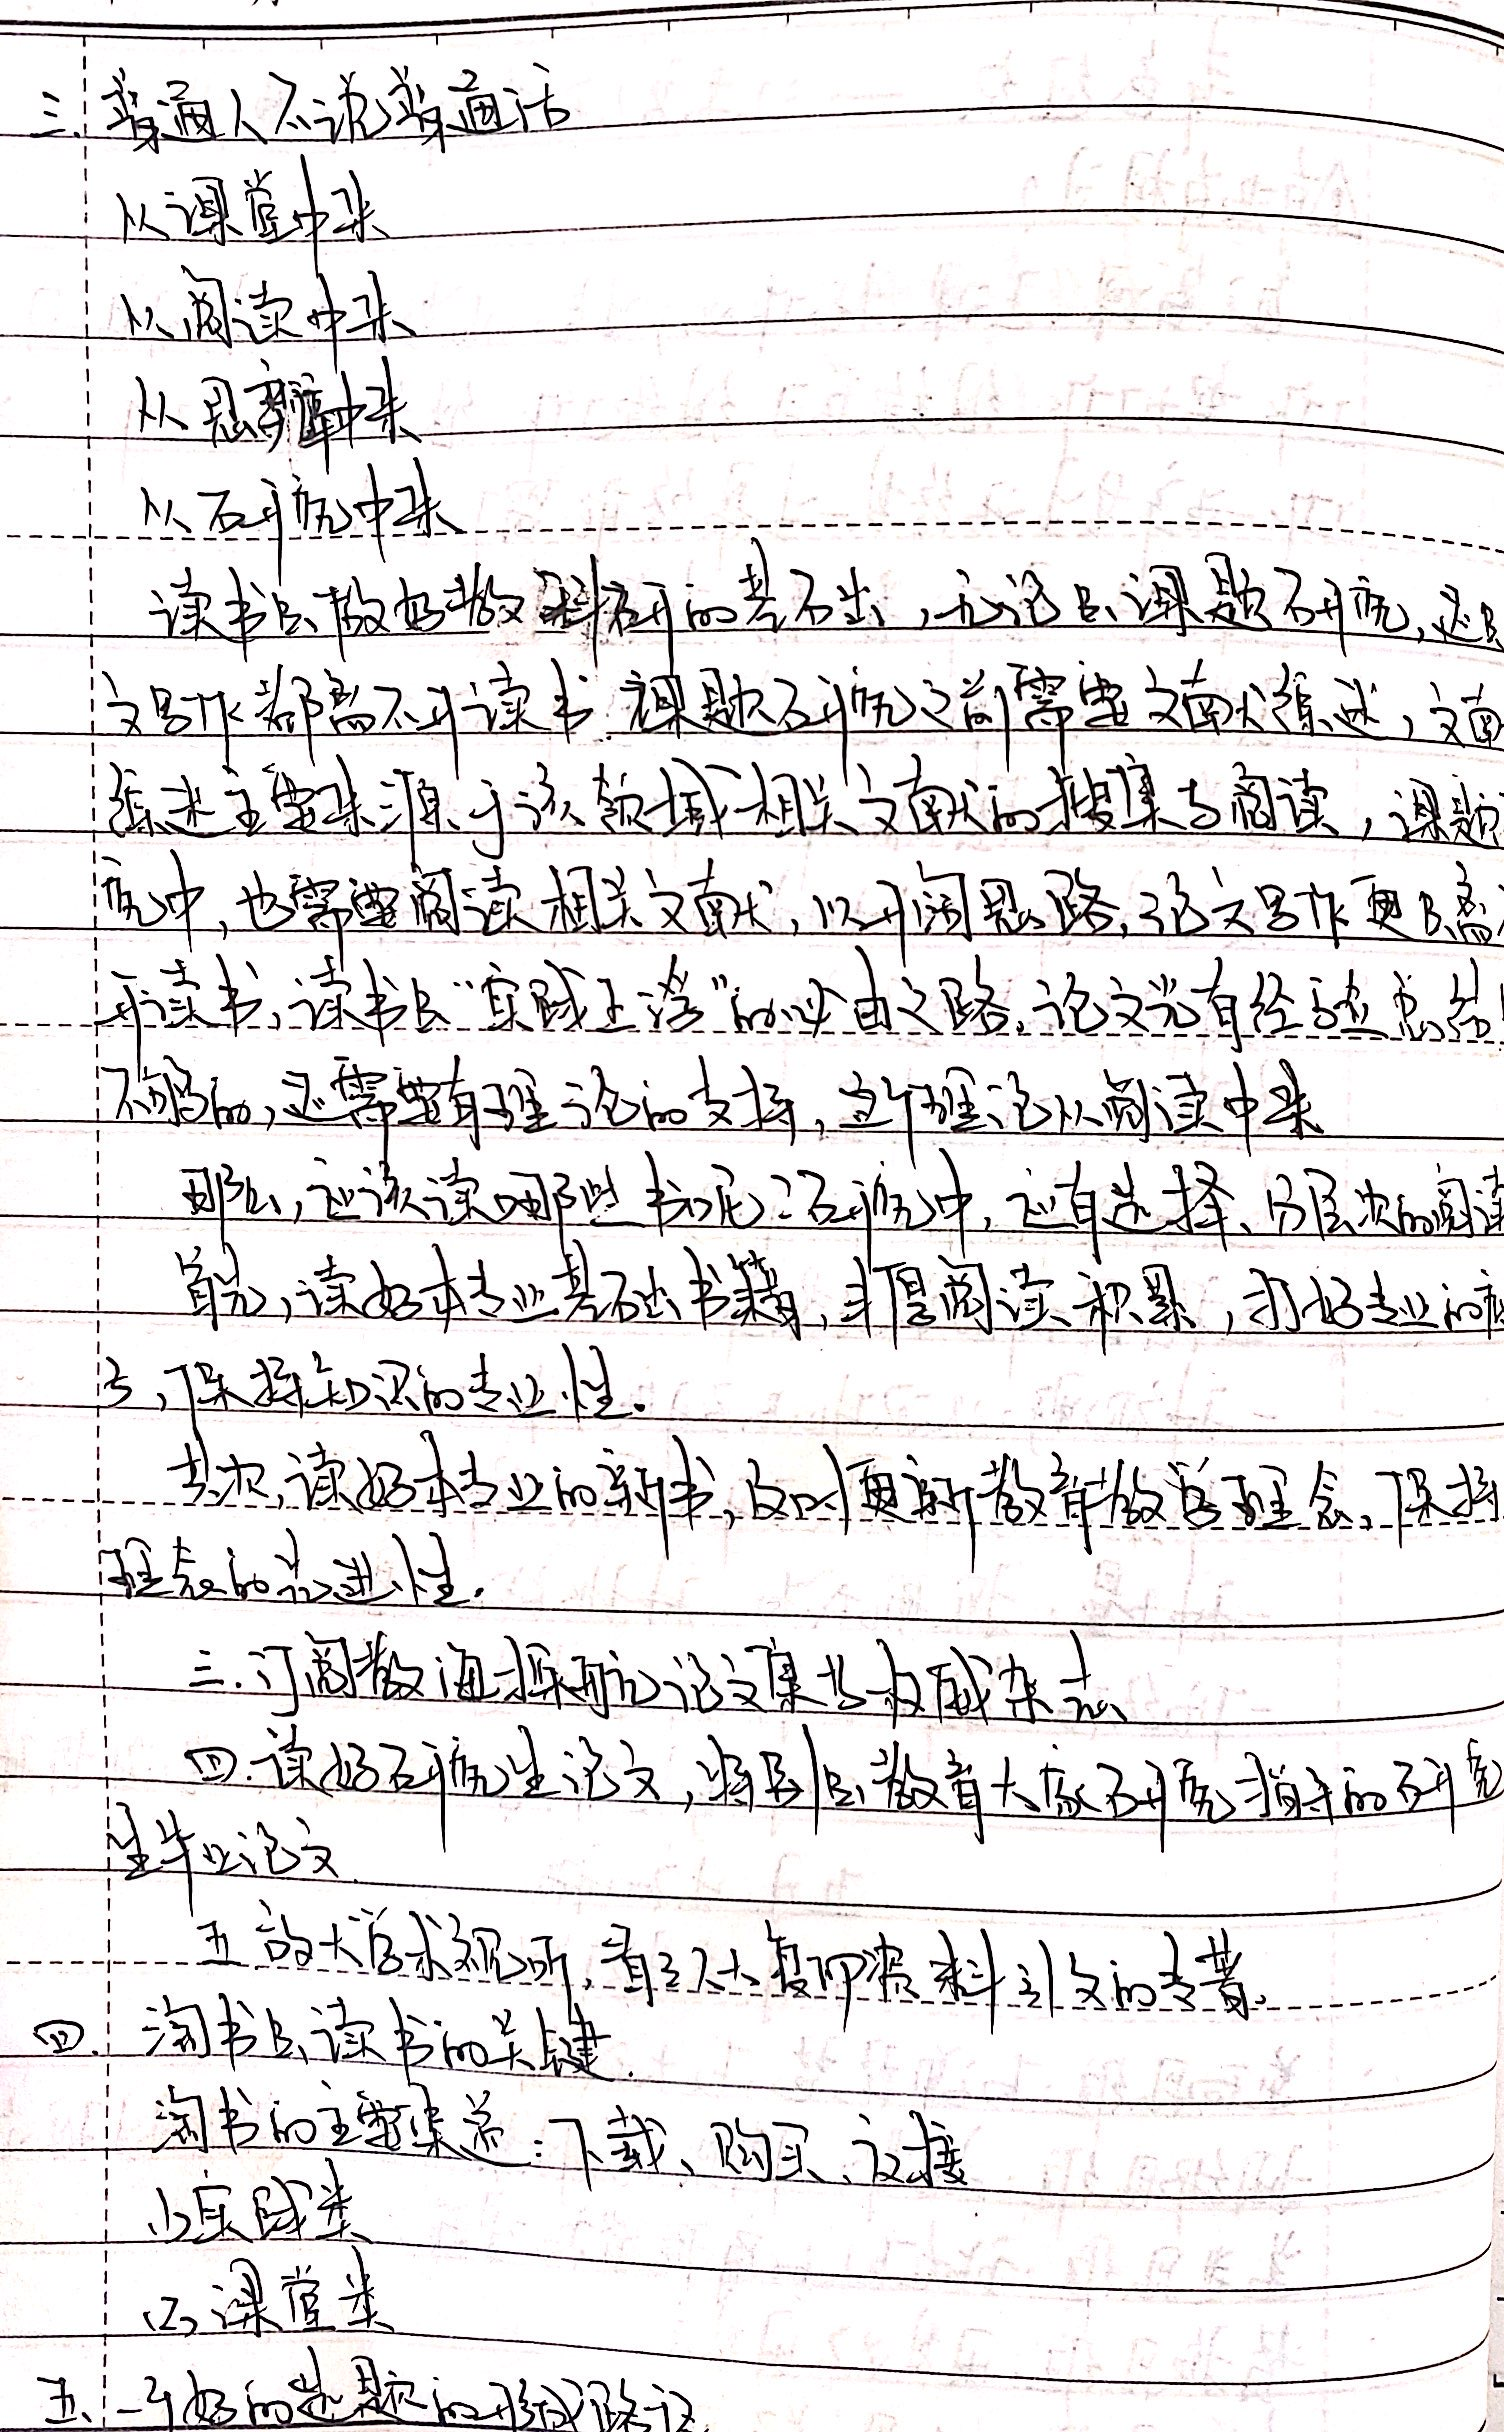 三.普通人不说普通话
从课堂中来
从阅读中来
从思辨中来
从研究中来
读书是做好教科研的基石出,无论是课题研究,还是
文写作都离不开读书.课题研究之前需要文献综述,文献
综述主要来源于该领域相关文献的搜集与阅读,课题
究中,也需要阅读相关文献,以开阔思路.论文写作更是离
开读书,读书是“实践上学”的必由之路.论文光有经验总结
不够的,还需要有理论的支撑,这个理论从阅读中来
那么,应该读哪些书呢?研究中,应有选择、分层次的阅读
首先,读好本专业基础书籍,获得阅读积累,打好专业的
子,保持知识的专业性.
其次,读好本专业的新书,及时更新教育教学理念,保持
理念的先进性.
三.订阅教海探航论文集与权威杂志
四.读好研究生论文,特别是教育大家研究指导的研究
生毕业论文.
五放大学术视野,看人大复印资料引文的专著.
四.淘书是读书的关键.
淘书的主要渠道:下载、购买、交换
(1)实践类
(2)课堂类
五、一个好的选题的形成路径